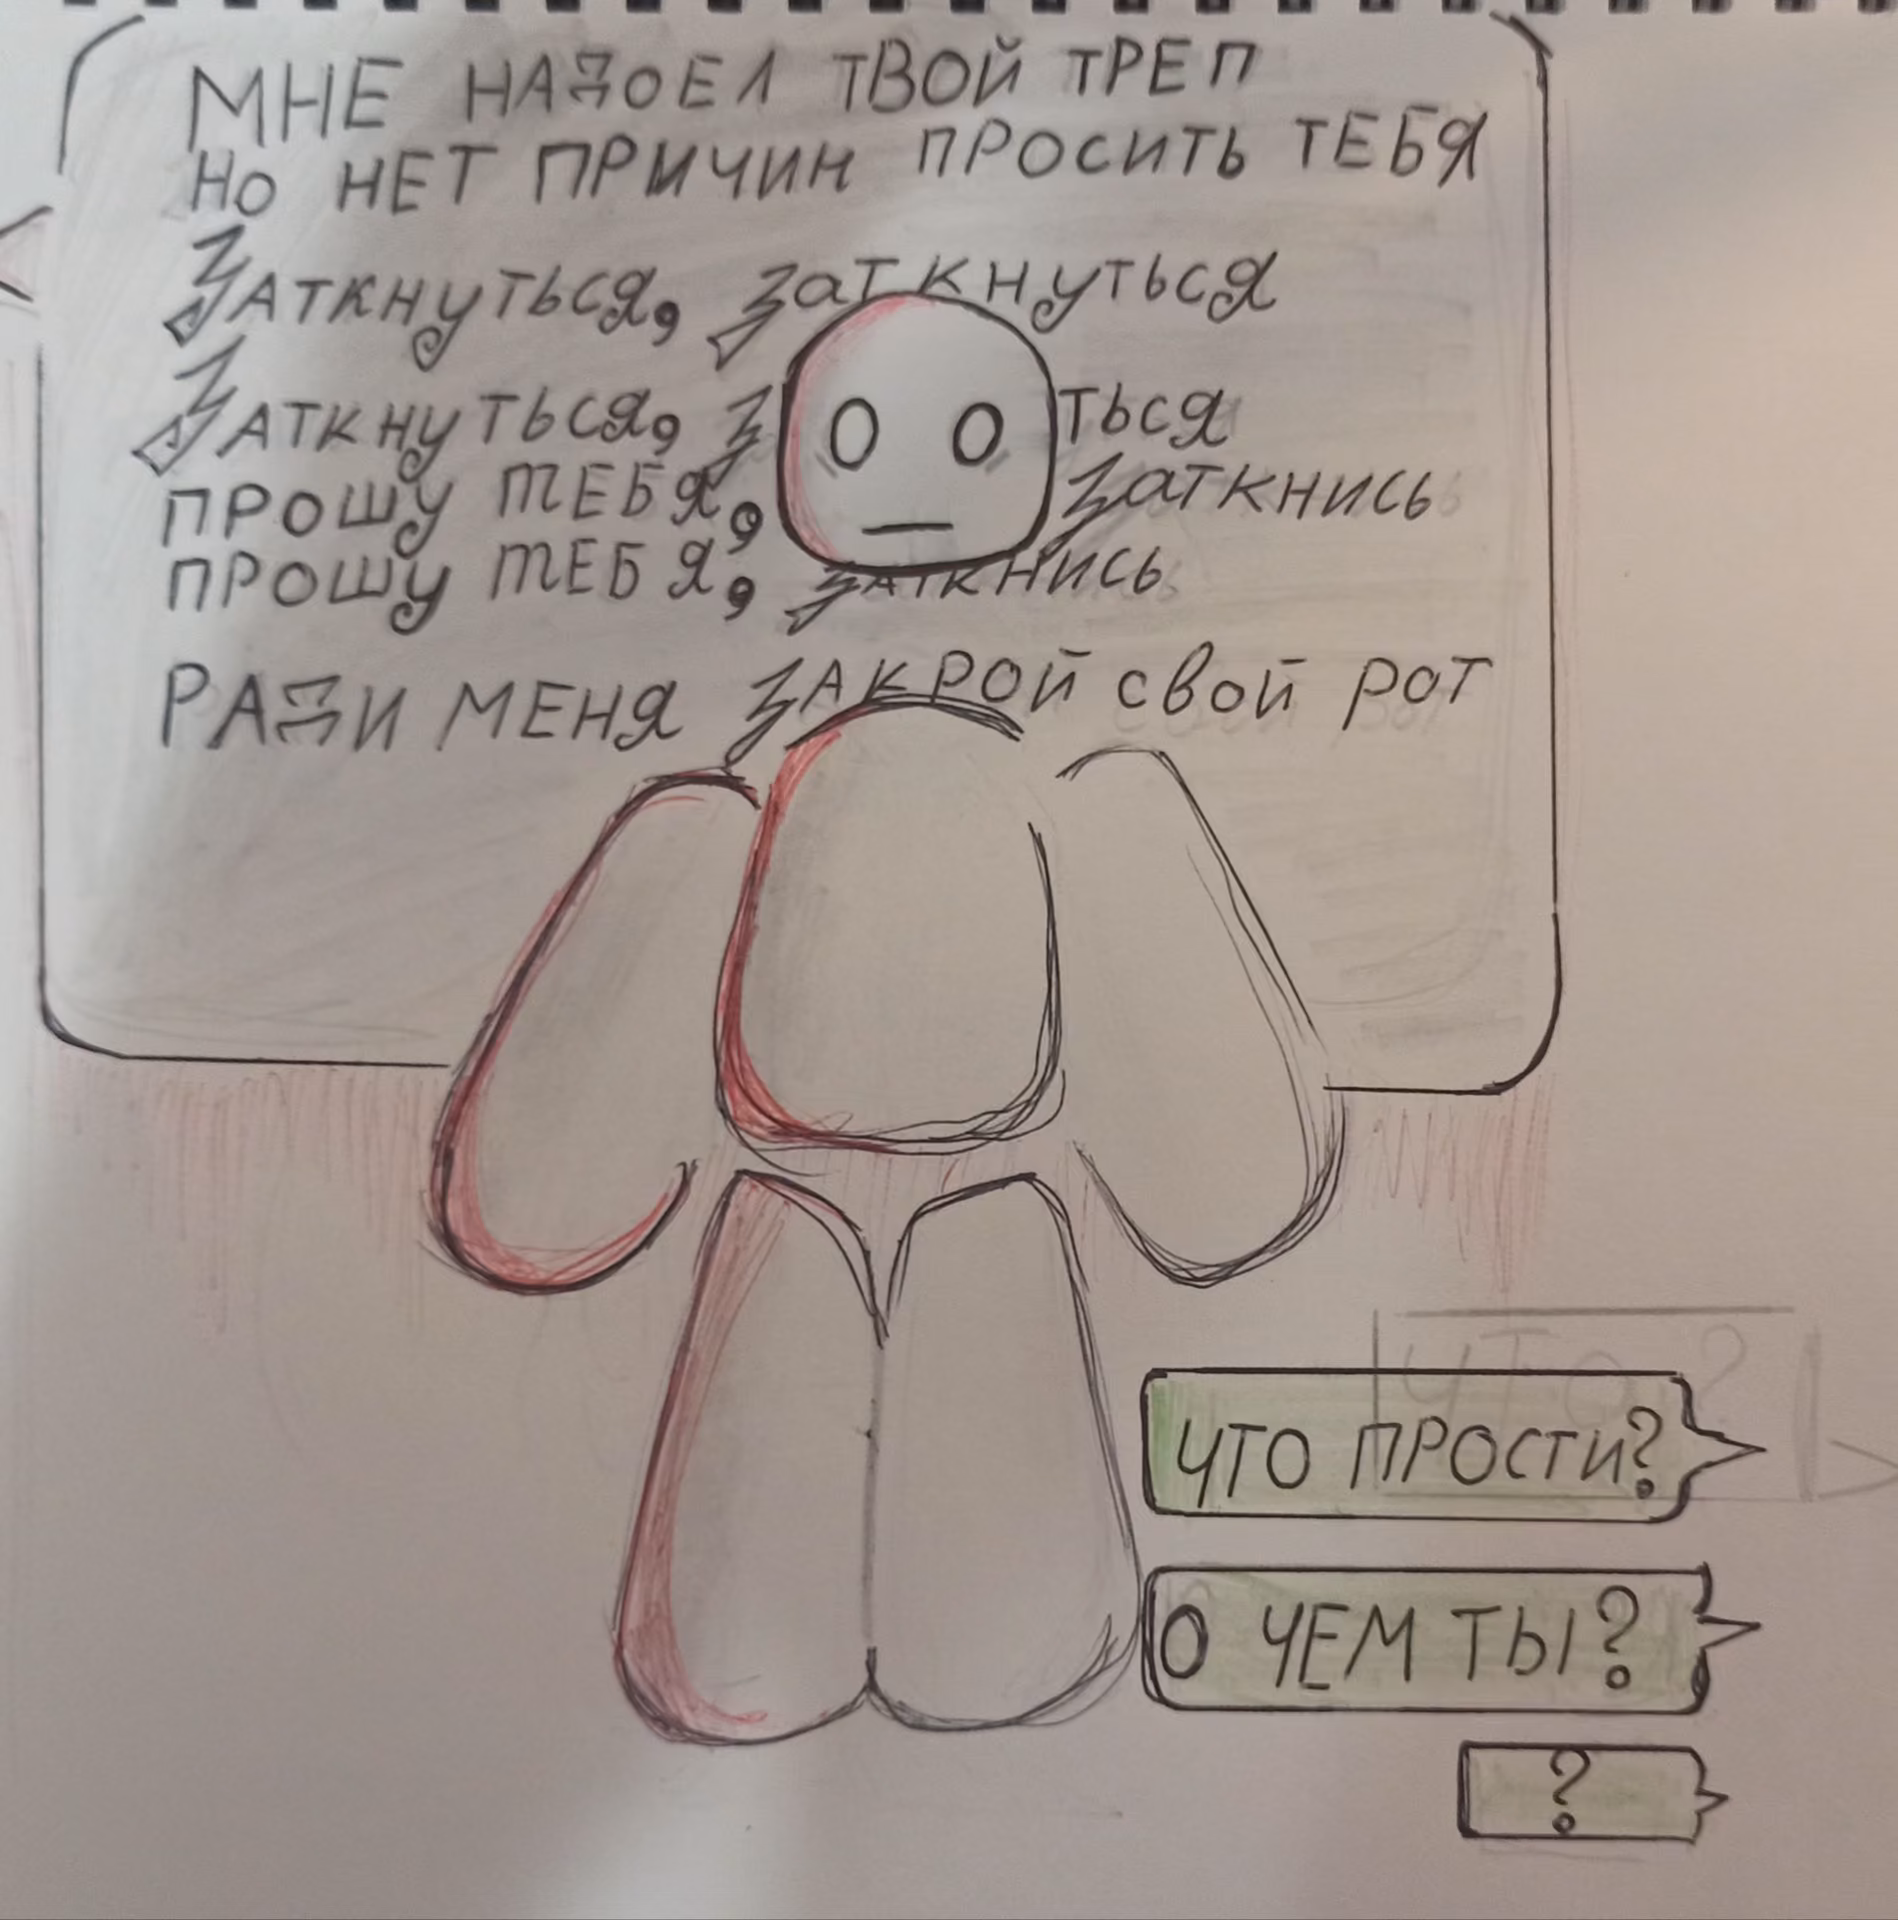 МНЕ НАДОЕЛ ТВОЙ ТРЕП
НО НЕТ ПРИЧИН ПРОСИТЬ ТЕБЯ
ЗАТКНУТЬСЯ, ЗАТКНУТЬСЯ
ЗАТКНУТЬСЯ, З ТЬСЯ
ПРОШУ ТЕБЯ, ЗАТКНИСЬ
ПРОШУ ТЕБЯ, ЗАТКНИСЬ
РАДИ МЕНЯ ЗАКРОЙ СВОЙ РОТ
ЧТО?
ЧТО ПРОСТИ?
О ЧЕМ ТЫ?
?